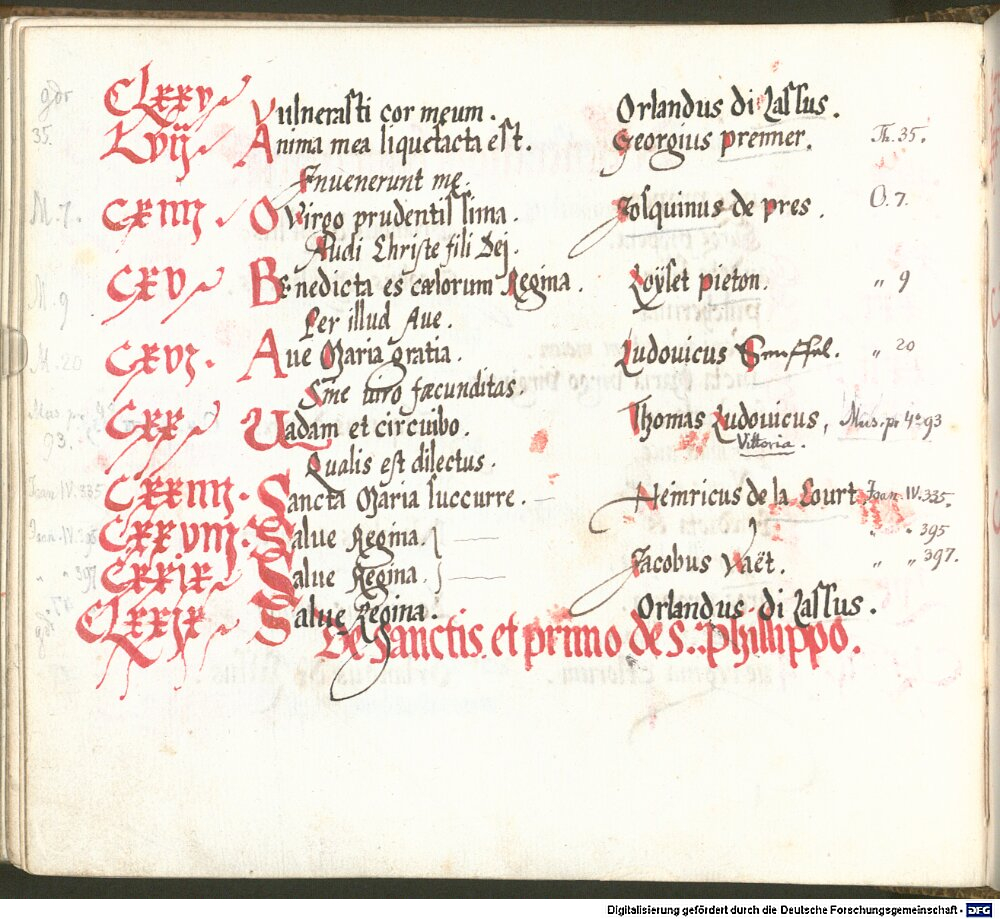 gdr CLxxv Vulnerasti cor meum. Orlandus di Lassus.
35. Lvij Anima mea liquefacta est. Georgius prenner. Th. 35.
Inuenerunt me.
M. 7. CXIIII. O Virgo prudentissima. Josquinus de pres. O. 7.
Audi Christe fili Dej.
M. 9 CXV Benedicta es cælorum Regina. Loÿset pieton. " 9
Per illud Aue.
M. 20 CXVI. Aue Maria gratia. Ludouicus Sennffal. " 20
Sine uiro fæcunditas.
93. CXX Uadam et circuibo. Thomas Ludouicus, Mus. pr 4° 93
Vittoria.
Qualis est dilectus.
Joan. IV. 335 CXXIIII. Sancta Maria succurre. Heinricus de la Court Joan. IV. 335.
Joan. IV. 395 CXXVIII. Salue Regina. " " 395
" " 397 CXXIX Salue Regina. Jacobus Vaët. " " 397.
CLXXIX Salue Regina. Orlandus di Lassus.
De Sanctis. et primo de S. phillippo.
Digitalisierung gefördert durch die Deutsche Forschungsgemeinschaft - DFG